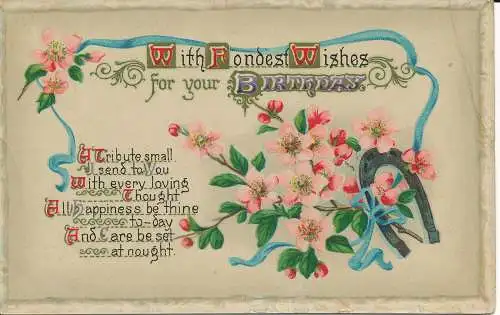 With Fondest Wishes
for your BIRTHDAY.
A Tribute small
I send to You
With every loving
Thought
All happiness be thine
to-day
And Care be set
at nought.